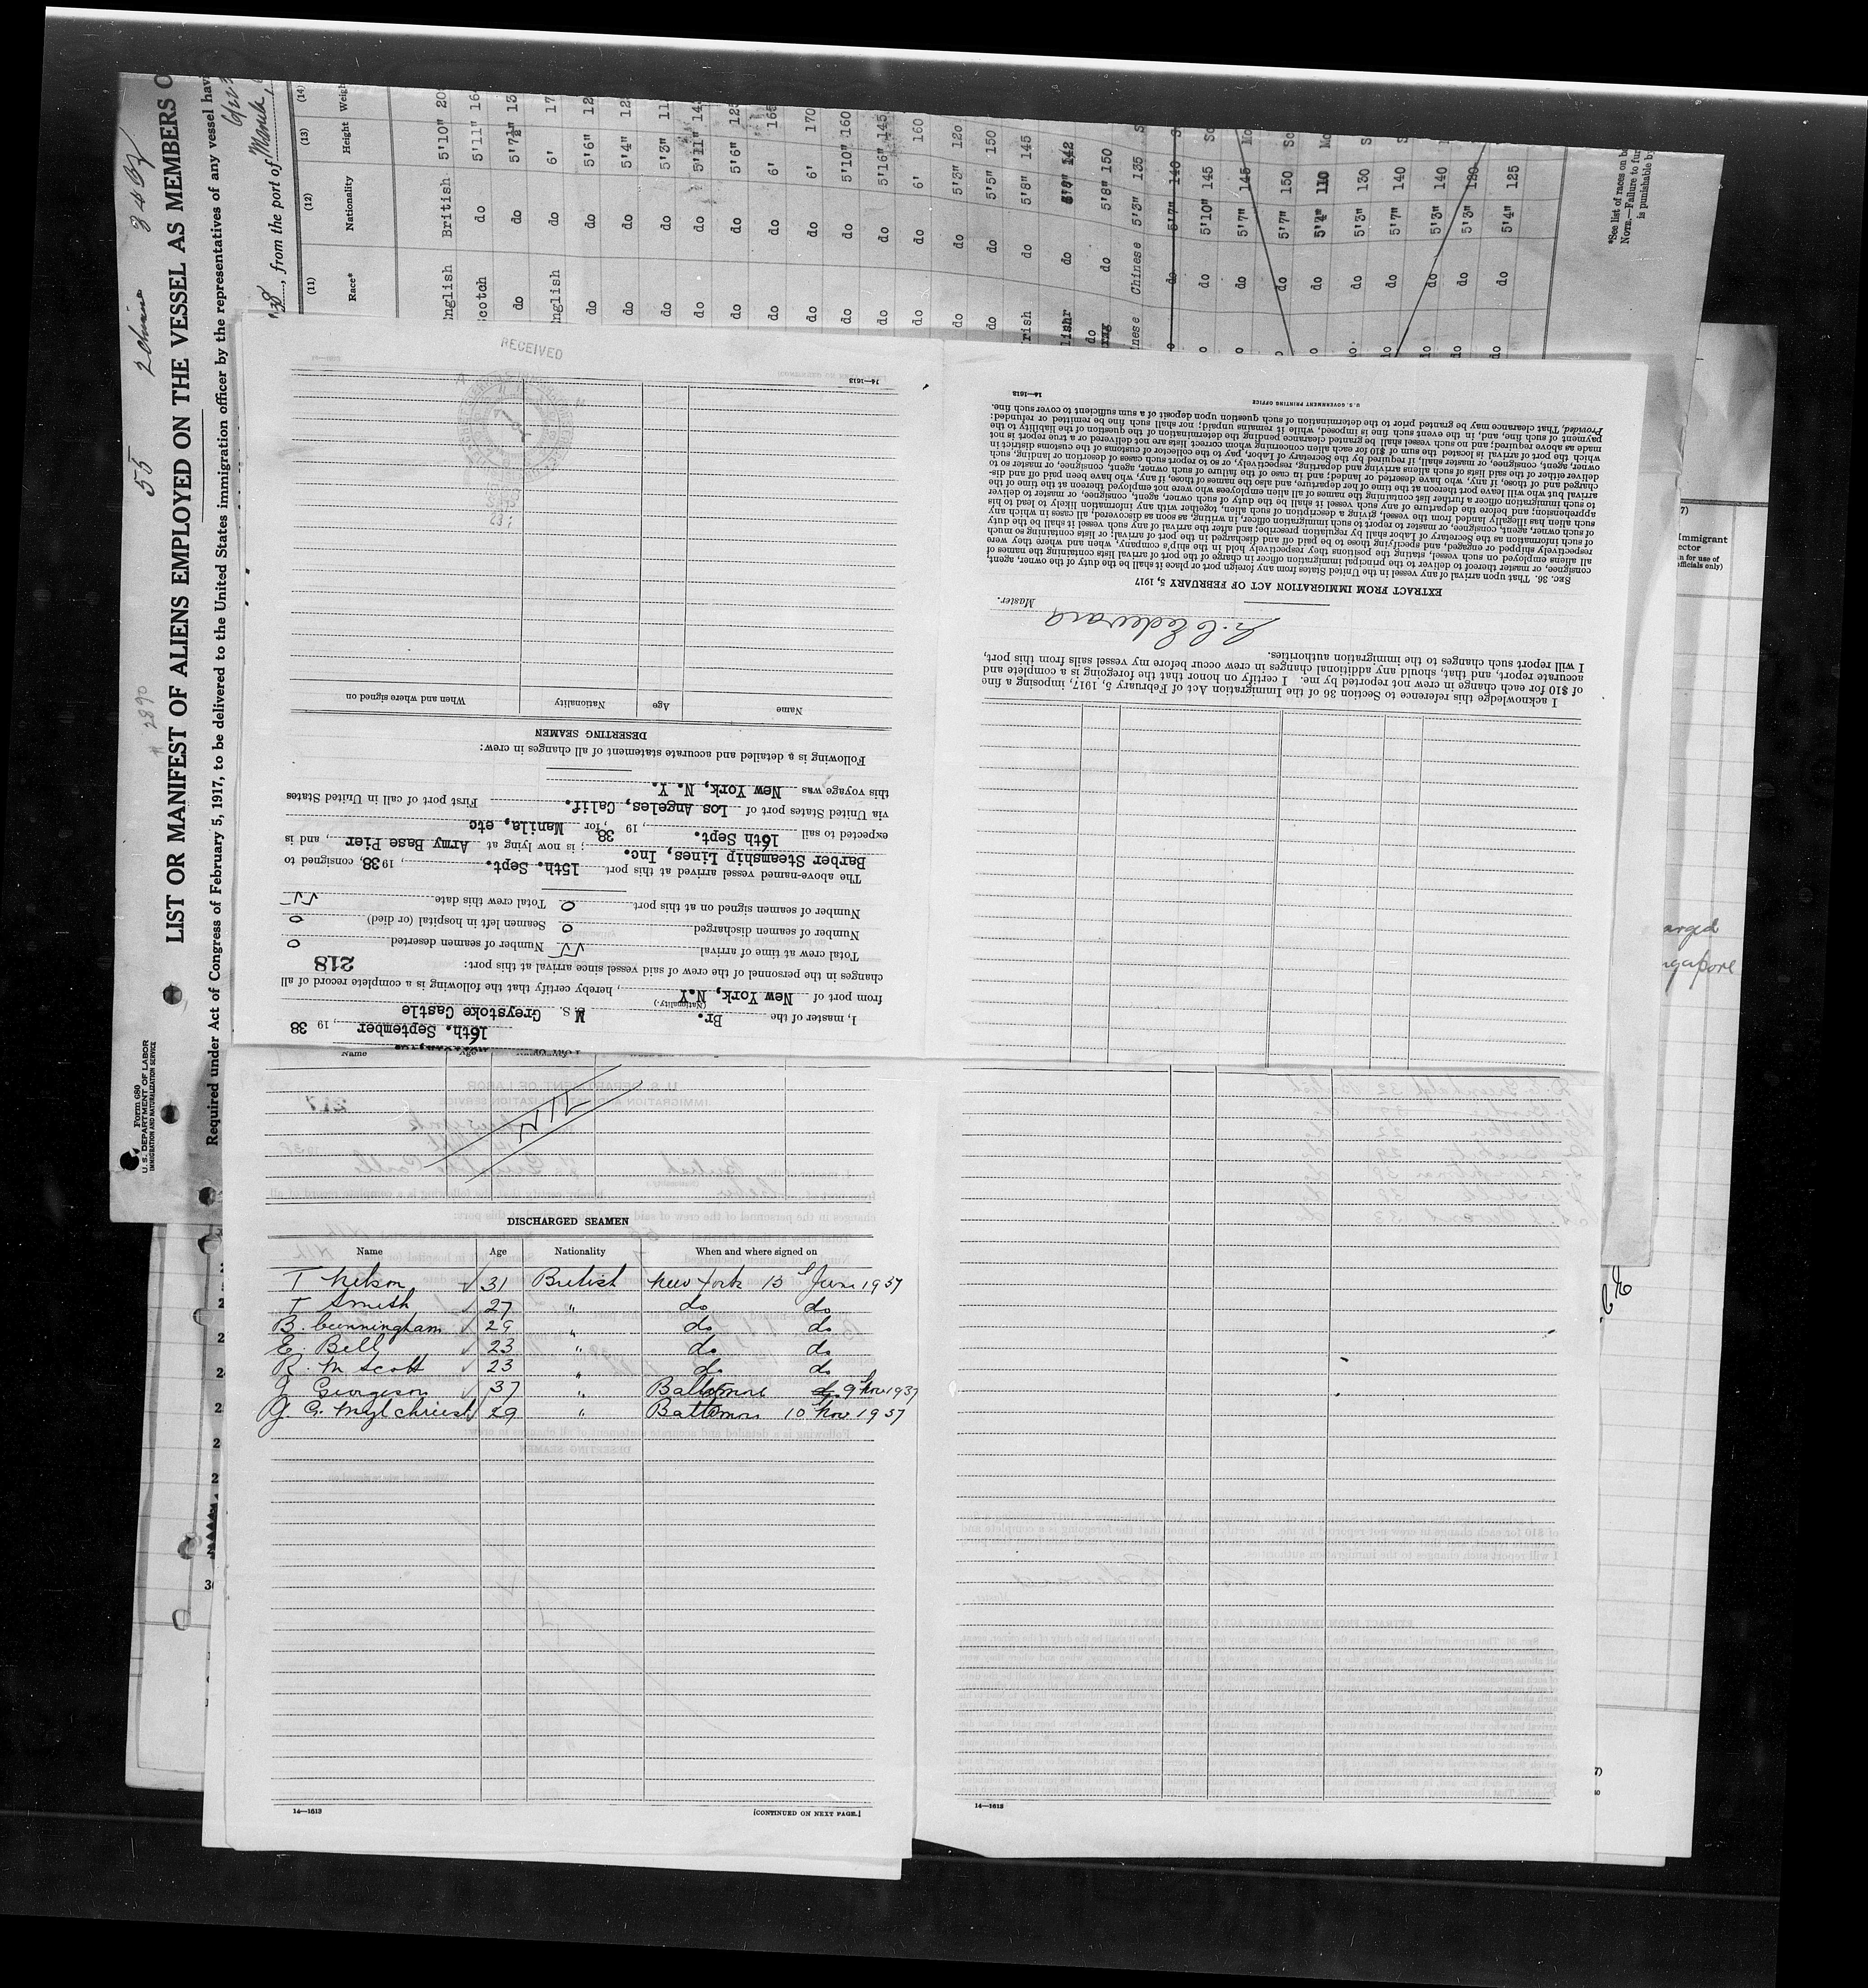 Form 680
U. S. DEPARTMENT OF LABOR
IMMIGRATION AND NATURALIZATION SERVICE
# 2890
55
LIST OR MANIFEST OF ALIENS EMPLOYED ON THE VESSEL AS MEMBERS O
Required under Act of Congress of February 5, 1917, to be delivered to the United States immigration officer by the representatives of any vessel hav
, from the port of Manila,
(11) (12) (13) (14)
Race* Nationality Height Weigh
nglish British 5'10" 20
cotch do 5'11" 16
do do 5'7½" 13
nglish do 6' 17
do do 5'6" 12
do do 5'4" 12
do do 5'3" 11
do do 5'11" 14
do do 5'6" 12
do do 6' 16
do do 6' 170
do do 5'10" 160
do do 5'16" 145
do do 6' 160
do do 5'3" 120
do do 5'5" 150
rish do 5'8" 145
do 142
do do 5'8" 150
nese Chinese 5'3" 135 S
do 5'7" 140 S
do 5'10" 145 So
do 5'7" 145
do 5'7" 150 So
do 5'2" 110
do 5'3" 130 S
do 5'7" 140
do 5'3" 140
do 5'3" 120
do 5'4" 125
*See list of races on b
NOTE.—Failure to fur
is punishable by
16th. September, 19 38
I, master of the Br. M S. Greystoke Castle
(Nationality.)
from port of New York, N.Y., hereby certify that the following is a complete record of all
changes in the personnel of the crew of said vessel since arrival at this port:
218
Total crew at time of arrival Number of seamen deserted 0
Number of seamen discharged 0 Seamen left in hospital (or died) 0
Number of seamen signed on at this port 0 Total crew this date
The above-named vessel arrived at this port 15th. Sept., 1938, consigned to
Barber Steamship Lines, Inc.; is now lying at Army Base Pier, and is
expected to sail 16th Sept., 19 38, for Manila, etc
via United States port of Los Angeles, Calif. First port of call in United States
this voyage was New York, N. Y.
Following is a detailed and accurate statement of all changes in crew:
DESERTING SEAMEN
Name Age Nationality When and where signed on
14—1613
RECEIVED
I acknowledge this reference to Section 36 of the Immigration Act of February 5, 1917, imposing a fine
of $10 for each change in crew not reported by me. I certify on honor that the foregoing is a complete and
accurate report, and that, should any additional changes in crew occur before my vessel sails from this port,
I will report such changes to the immigration authorities.
Master.
EXTRACT FROM IMMIGRATION ACT OF FEBRUARY 5, 1917
SEC. 36. That upon arrival of any vessel in the United States from any foreign port or place it shall be the duty of the owner, agent,
consignee, or master thereof to deliver to the principal immigration officer in charge of the port of arrival lists containing the names of
all aliens employed on such vessel, stating the positions they respectively hold in the ship's company, when and where they were
respectively shipped or engaged, and specifying those to be paid off and discharged in the port of arrival; or lists containing so much
of such information as the Secretary of Labor shall by regulation prescribe; and after the arrival of any such vessel it shall be the duty
of such owner, agent, consignee, or master to report to such immigration officer, in writing, as soon as discovered, all cases in which any
such alien has illegally landed from the vessel, giving a description of such alien, together with any information likely to lead to his
apprehension; and before the departure of any such vessel it shall be the duty of such owner, agent, consignee, or master to deliver
to such immigration officer a further list containing the names of all alien employees who were not employed thereon at the time of the
arrival but who will leave port thereon at the time of her departure, and also the names of those, if any, who have been paid off and dis-
charged and of those, if any, who have deserted or landed; and in case of the failure of such owner, agent, consignee, or master so to
deliver either of the said lists of such aliens arriving and departing, respectively, or so to report such cases of desertion or landing, such
owner, agent, consignee, or master shall, if required by the Secretary of Labor, pay to the collector of customs of the customs district in
which the port of arrival is located the sum of $10 for each alien concerning whom correct lists are not delivered or a true report is not
made as above required; and no such vessel shall be granted clearance pending the determination of the question of the liability to the
payment of such fine, and, in the event such fine is imposed, while it remains unpaid; nor shall such fine be remitted or refunded:
Provided, That clearance may be granted prior to the determination of such question upon deposit of a sum sufficient to cover such fine.
U. S. GOVERNMENT PRINTING OFFICE
14—1613
NIL
DISCHARGED SEAMEN
Name Age Nationality When and where signed on
T Nelson 31 British New York 15 June 1937
T Smith 27 " do do
B. Cunningham 29 " do do
E. Bell 23 " do do
R. M Scott 23 " do do
J Georgeson 37 " Baltimore 9 Nov 1937
J. G. Mylchriest 29 " Baltimore 10 Nov 1937
14—1613 [CONTINUED ON NEXT PAGE.]
14—1613
Immigrant
arged